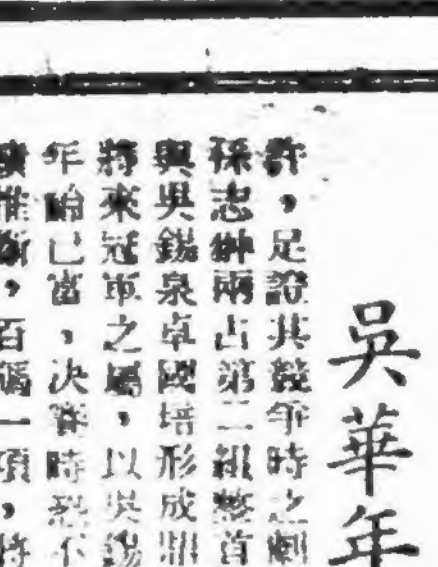 吳華年
許，足證其競爭時之劇
孫志翀兩占第二組整首
與吳錫泉卓國培形成鼎
將來冠軍之屬，以吳錫
年齡已富，決賽時恐不
推斷，百碼一項，將